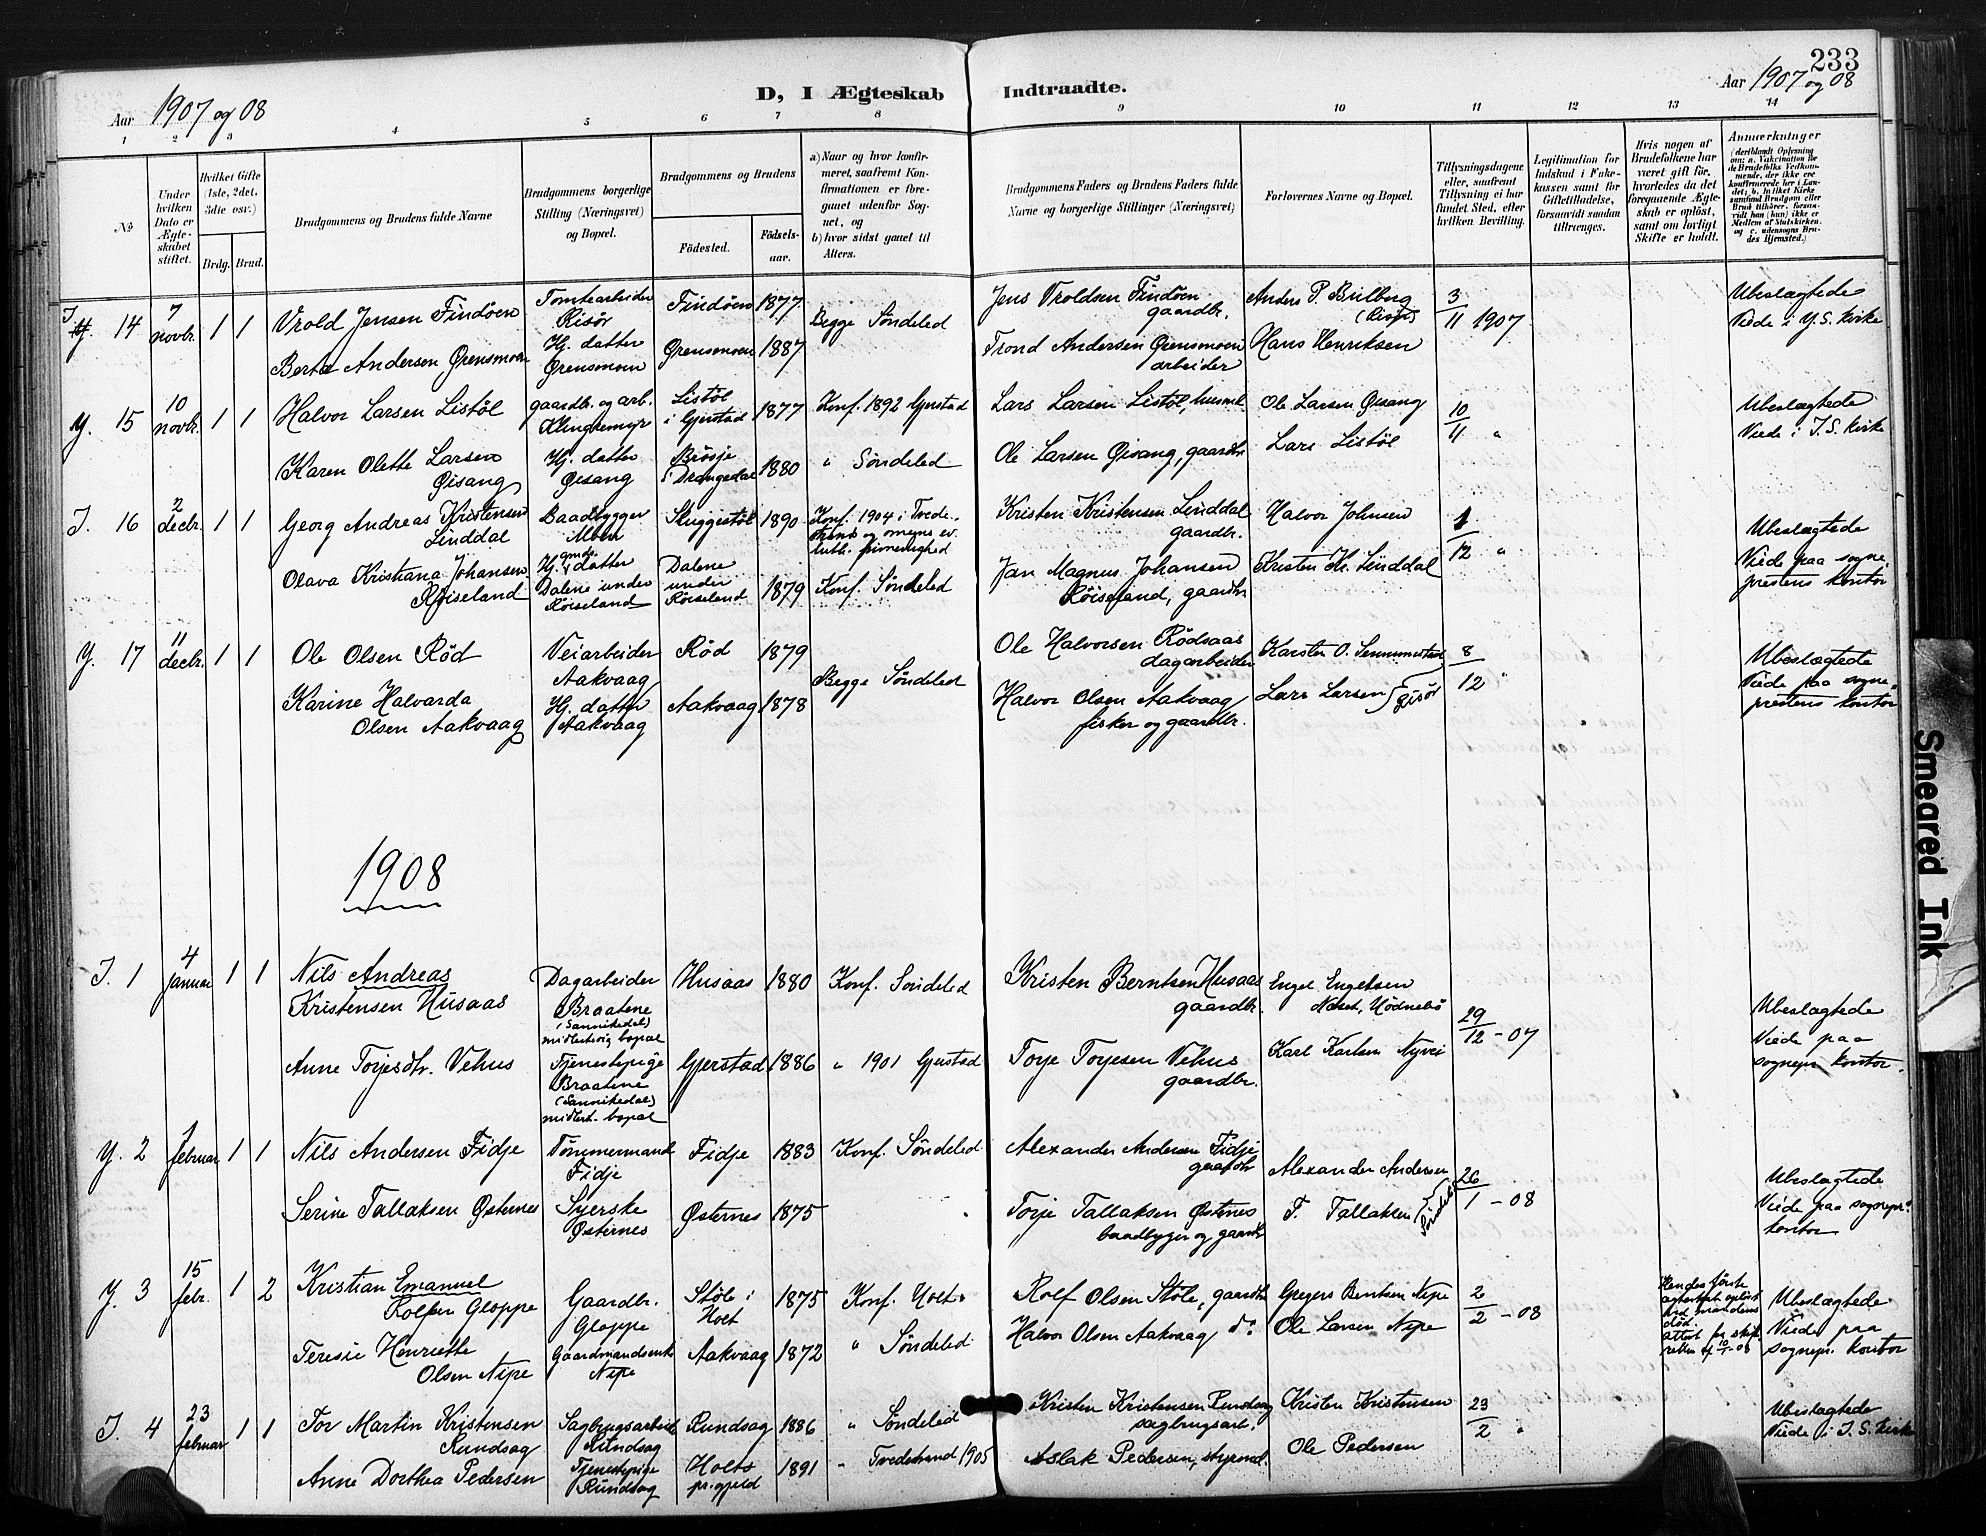 233
Aar 1907 og 08
D, I Ægteskab Indtraadte.
Aar 1907 og 08
1 2 3 4 5 6 7 8 9 10 11 12 13 14
№
Under hvilken Dato er Ægteskabet stiftet.
Hvilket Gifte (1ste, 2det, 3die osv.)
Brdg. Brud.
Brudgommens og Brudens fulde Navne
Brudgommens borgerlige Stilling (Næringsvei) og Bopæl.
Brudgommens og Brudens
Födested.
Födselsaar.
a) Naar og hvor konfirmeret, saafremt Konfirmationen er foregaaet udenför Sognet, og
b) hvor sidst gaaet til Alters.
Brudgommens Faders og Brudens Faders fulde Navne og borgerlige Stillinger (Næringsvei)
Forlovernes Navne og Bopæl.
Tillysningsdagene eller, saafremt Tillysning ei har fundet Sted, efter hvilken Bevilling.
Legitimation for Indskud i Enkekassen samt for Giftetilladelse, forsaavidt saadan tiltrænges.
Hvis nogen af Brudefolkene har været gift för, hvorledes da det foregaaende Ægteskab er oplöst, samt om lovligt Skifte er holdt.
Anmærkninger
(deriblandt Oplysning om: a. Vakcination for de Brudefolks Vedkommende, der ikke ere konfirmerede her i Landet; b. hvilket Kirkesamfund Brudgom eller Brud tilhörer, forsaavidt han (hun) ikke er Medlem af Statskirken, og c. udensogns Brudes Hjemsted.)
I. 14 7 novbr. 1 1
Vrold Jensen Findöen
Tomtearbeider Risör
Findöen 1877
Begge Söndeled
Jens Vroldsen Findöen gaardbr.
Anders P. Brilberg (Risör)
3/11 1907
Ubeslægtede
Viede i Y.S. kirke
Berta Andersen Grensmoen
Hj. datter Grensmoen
Grensmoen 1887
Trond Andersen Grensmoen arbeider
Hans Henriksen
Y. 15 10 novbr. 1 1
Halvor Larsen Listöl
gaardbr. og arb. Klingtemyr
Listöl i Gjerstad 1877
Konf. 1892 Gjerstad
Lars Larsen Listöl, husm.
Ole Larsen Gisang
10/11 "
Ubeslægtede
Viede i I.S. kirke
Karen Olette Larsen Gisang
Hj. datter Gisang
Brösje i Drangedal 1880
" Söndeled
Ole Larsen Gisang, gaardbr.
Lars Listöl
I. 16 2 decbr. 1 1
Georg Andreas Kristensen Linddal
Baadbygger Moen
Skuggestöl 1890
Konf. 1904 i Tvedestrand og omegns ev. luth. frimenighed
Kristen Kristensen Linddal gaardbr.
Halvor Johnsen
1/12 "
Ubeslægtede
Viede paa sogneprestens kontor
Olava Kristiana Johansen Röiseland
Hj. gmde. datter Dalene under Röiseland
Dalene under Röiseland 1879
Konf. Söndeled
Jan Magnus Johansen Röiseland, gaardbr.
Kristen Kr. Linddal
Y. 17 11 decbr. 1 1
Ole Olsen Röd
Veiarbeider Aakvaag
Röd 1879
Begge Söndeled
Ole Halvorsen Rödsaas dagarbeider
Karsten O.
8/12 "
Ubeslægtede
Viede paa sogneprestens kontor
Karine Halvarda Olsen Aakvaag
Hj. datter Aakvaag
Aakvaag 1878
Halvor Olsen Aakvaag fisker og gaardbr.
Lars Larsen } Risör
1908
I. 1 4 januar 1 1
Nils Andreas Kristensen Husaas
Dagarbeider Braatene (Sannikedal) midlertidig bopæl
Husaas 1880
Konf. Söndeled
Kristen Berntsen Husaas gaardbr.
Engel Engelsen Næset, Hödnebö
29/12 - 07
Ubeslægtede
Viede paa sognepr. kontor.
Anne Torjesdtr. Vehus
Tjenestepige Braatene (Sannikedal) midlert. bopæl
Gjerstad 1886
" 1901 Gjerstad
Torje Torjesen Vehus gaardbr.
Karl Karlsen Nyvei
Y. 2 1 februar 1 1
Nils Andersen Fidje
Tömmermand Fidje
Fidje 1883
Konf. Söndeled
Alexander Andersen Fidje gaardbr
Alexander Andersen
26/1 - 08
Ubeslægtede
Viede paa sognepr. kontor
Serine Tallaksen Østernes
Syerske Østernes
Østernes 1875
Torje Tallaksen Østernes baadbygger og gaardbr
T. Tallaksen } Söndeled
Y. 3 15 febr. 1 2
Kristian Emanuel Rolfsen Gloppe
Gaardbr. Gloppe
Stöle i Holt 1875
Konf. Holt
Rolf Olsen Stöle, gaardbr
Gregers Berntsen Nipe
2/2 - 08
Hendes förste ægteskab oplöst ved mandens död. attest fra skifteretten af
Ubeslægtede
Viede paa sognepr. kontor
Teresie Henriette Olsen Nipe
Gaardmandsenke Nipe
Aakvaag 1872
" Söndeled
Halvor Olsen Aakvaag do
Ole Larsen Nipe
I. 4 23 februar 1 1
Tor Martin Kristensen Rundsag
Sagbrugsarbeider Rundsag
Rundsag 1886
" Söndeled
Kristen Kristensen Rundsag sagbrugsarb.
Kristen Kristensen
23/2 "
Ubeslægtede
Viede i I.S. kirke
Anne Dorthea Pedersen
Tjenestepige Rundsag
Holts pr.gjeld 1891
" Tvedestrand 1905
Aslak Pedersen, styrmd.
Ole Pedersen
Smeared Ink